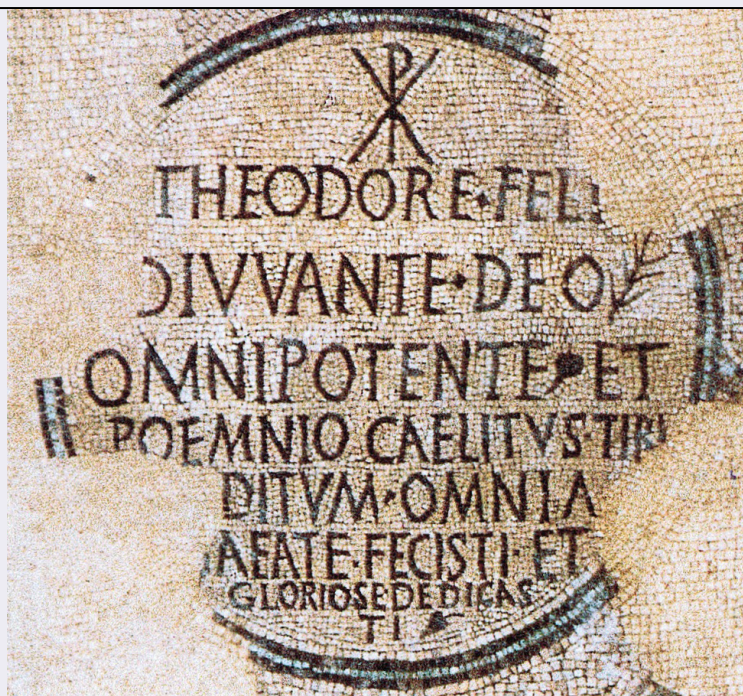 ☧
THEODORE·FELI
DIVVANTE·DEO
OMNIPOTENTE ET
POEMNIO CAELITVS·TIBI
DITVM·OMNIA
AEATE·FECISTI·ET
GLORIOSEDEDICAS
TI